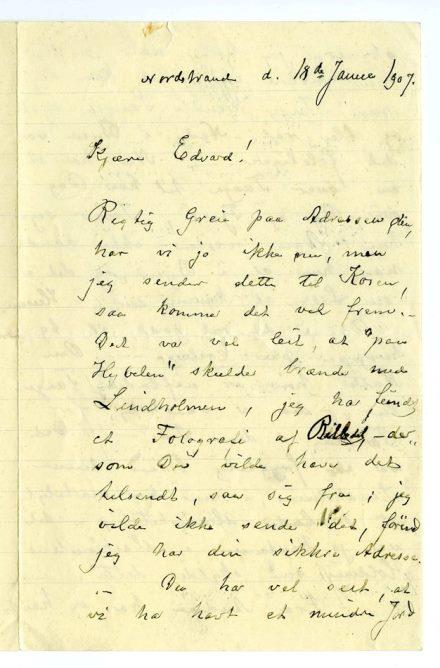 Nordstrand d. 18de Januar 1907.
Kjære Edvard!
Rigtig Greie paa Adressen din,
har vi jo ikke nu, men
jeg sender dette til Kosen,
saa kommer det vel frem. -
Det va vel leit, at "paa
Hybelen" skulde brænde med
Lindholmen, jeg har
et Fotografi af Billedet - der-
som Du vilde have det
tilsendt, saa sig fra; jeg
vilde ikke sende det, førend
jeg har din sikkre Adresse.
- Du har vel seet, at
vi ha havt et mindre Jord